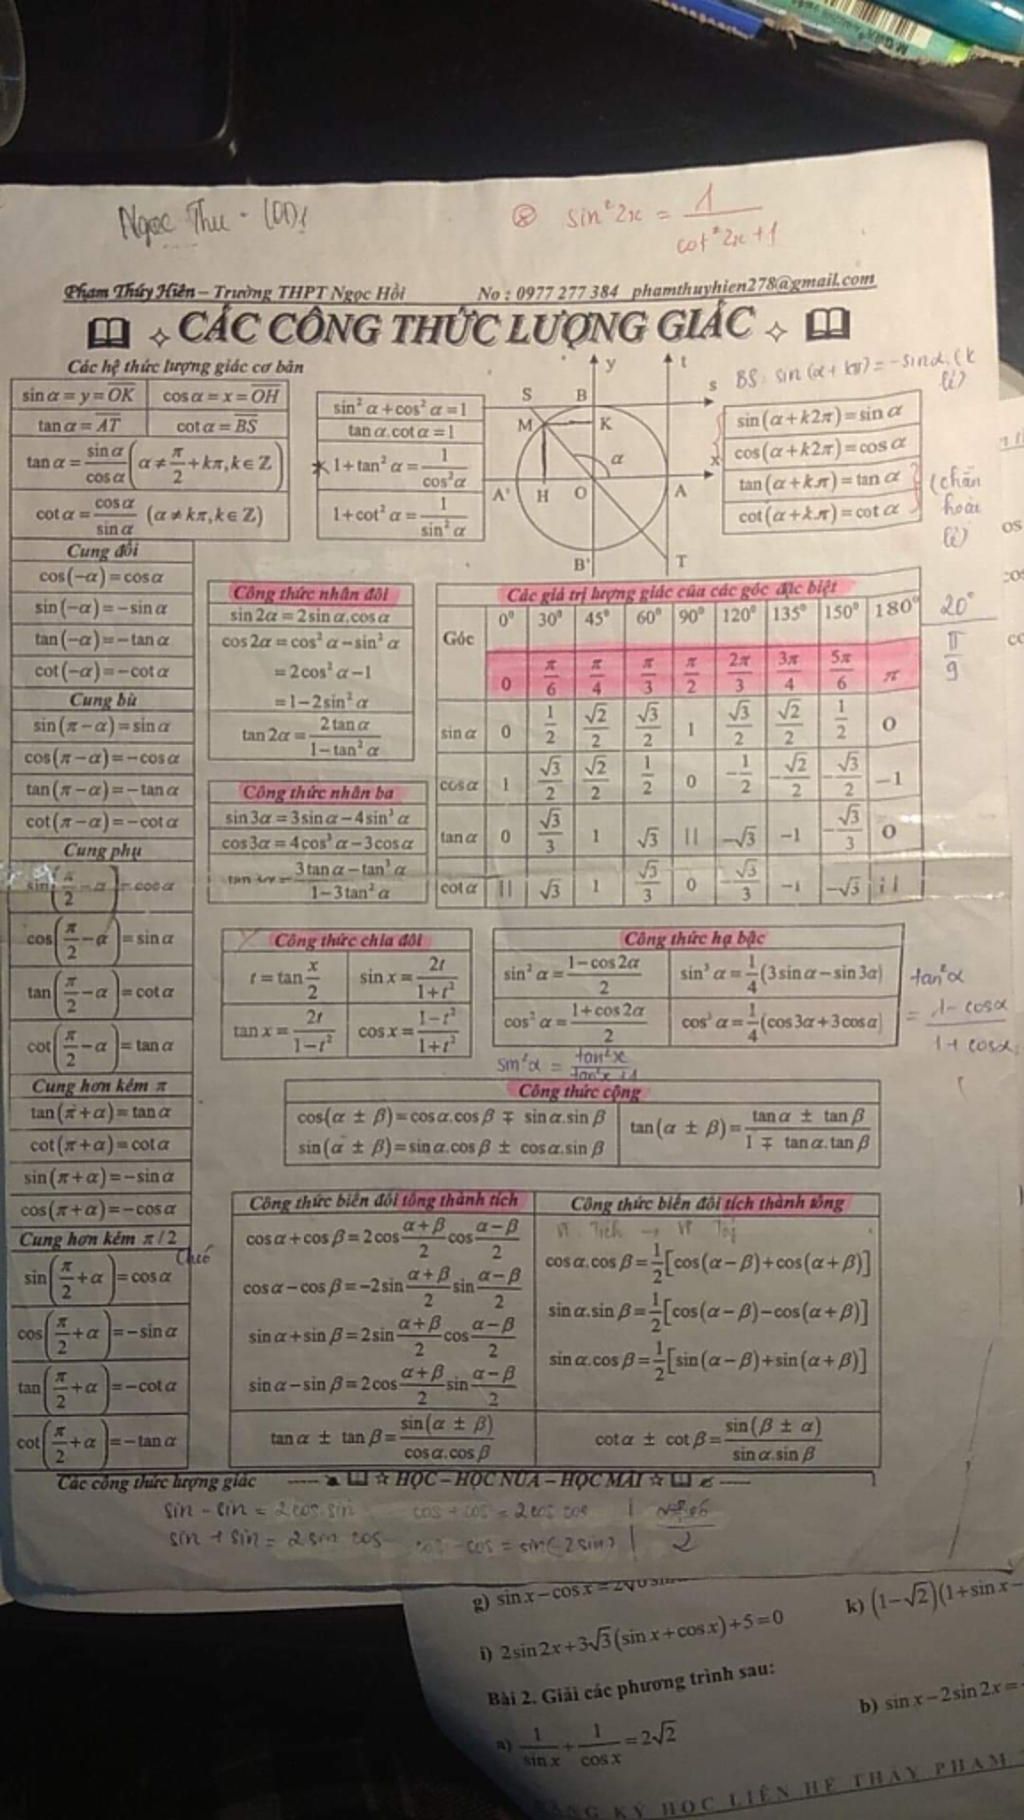 Ngọc Thu - 10D1
⊗ sin²2x = 1/(cot²2x+1)
Phạm Thúy Hiên – Trường THPT Ngọc Hồi No : 0977 277 384 phamthuyhien278@gmail.com
CÁC CÔNG THỨC LƯỢNG GIÁC
Các hệ thức lượng giác cơ bản
sin α = y = OK cos α = x = OH
tan α = AT cot α = BS
tan α = sin α/cos α (α ≠ π/2 + kπ, k ∈ ℤ)
cot α = cos α/sin α (α ≠ kπ, k ∈ ℤ)
sin² α + cos² α = 1
tan α . cot α = 1
* 1 + tan² α = 1/cos² α
1 + cot² α = 1/sin² α
y t s
S B
M K
α x
A' H O A
B' T
BS: sin(α + kπ) = -sin α (k lẻ)
sin(α + k2π) = sin α
cos(α + k2π) = cos α
tan(α + kπ) = tan α
cot(α + kπ) = cot α
(chẵn
hoặc
lẻ)
Cung đối
cos(−α) = cos α
sin(−α) = −sin α
tan(−α) = −tan α
cot(−α) = −cot α
Cung bù
sin(π − α) = sin α
cos(π − α) = −cos α
tan(π − α) = −tan α
cot(π − α) = −cot α
Cung phụ
sin(π/2 − α) = cos α
cos(π/2 − α) = sin α
tan(π/2 − α) = cot α
cot(π/2 − α) = tan α
Cung hơn kém π
tan(π + α) = tan α
cot(π + α) = cot α
sin(π + α) = −sin α
cos(π + α) = −cos α
Cung hơn kém π / 2
chéo
sin(π/2 + α) = cos α
cos(π/2 + α) = −sin α
tan(π/2 + α) = −cot α
cot(π/2 + α) = −tan α
Công thức nhân đôi
sin 2α = 2 sin α . cos α
cos 2α = cos² α − sin² α
= 2cos² α − 1
= 1 − 2sin² α
tan 2α = 2 tan α/(1 − tan² α)
Công thức nhân ba
sin 3α = 3 sin α − 4 sin³ α
cos 3α = 4 cos³ α − 3 cos α
3 tan α − tan³ α/(1 − 3 tan² α)
Các giá trị lượng giác của các góc đặc biệt
Góc 0⁰ 30⁰ 45⁰ 60⁰ 90⁰ 120⁰ 135⁰ 150⁰ 180⁰
0 π/6 π/4 π/3 π/2 2π/3 3π/4 5π/6 π
sin α 0 1/2 √2/2 √3/2 1 √3/2 √2/2 1/2 0
cos α 1 √3/2 √2/2 1/2 0 −1/2 −√2/2 −√3/2 −1
tan α 0 √3/3 1 √3 || −√3 −1 −√3/3 0
cot α || √3 1 √3/3 0 −√3/3 −1 −√3 ||
20°
π/9
Công thức chia đôi
t = tan x/2 sin x = 2t/(1 + t²)
tan x = 2t/(1 − t²) cos x = (1 − t²)/(1 + t²)
Công thức hạ bậc
sin² α = (1 − cos 2α)/2 sin³ α = 1/4(3 sin α − sin 3α)
cos² α = (1 + cos 2α)/2 cos³ α = 1/4(cos 3α + 3 cos α)
tan²α
= (1 - cosα)/(1 + cosα)
sin²α = tan²x/(tan²x + 1)
Công thức cộng
cos(α ± β) = cos α . cos β ∓ sin α . sin β
sin(α ± β) = sin α . cos β ± cos α . sin β
tan(α ± β) = (tan α ± tan β)/(1 ∓ tan α . tan β)
Công thức biến đổi tổng thành tích
cos α + cos β = 2 cos (α + β)/2 cos (α − β)/2
cos α − cos β = −2 sin (α + β)/2 sin (α − β)/2
sin α + sin β = 2 sin (α + β)/2 cos (α − β)/2
sin α − sin β = 2 cos (α + β)/2 sin (α − β)/2
tan α ± tan β = sin(α ± β)/(cos α . cos β)
Công thức biến đổi tích thành tổng
cos α . cos β = 1/2[cos(α − β) + cos(α + β)]
sin α . sin β = 1/2[cos(α − β) − cos(α + β)]
sin α . cos β = 1/2[sin(α − β) + sin(α + β)]
cot α ± cot β = sin(β ± α)/(sin α . sin β)
Các công thức lượng giác ☆ HỌC – HỌC NỮA – HỌC MÃI ☆
sin - sin = 2 cos. sin cos + cos = 2 cos cos
sin + sin = 2 sin cos - cos = sin(-2 sin)
2
g) sin x − cos x =
k) (1 − √2)(1 + sin x −
i) 2 sin 2x + 3√3(sin x + cos x) + 5 = 0
Bài 2. Giải các phương trình sau:
a) 1/sin x + 1/cos x = 2√2
b) sin x − 2 sin 2x =
KÝ HỌC LIÊN HỆ THẦY PHẠM